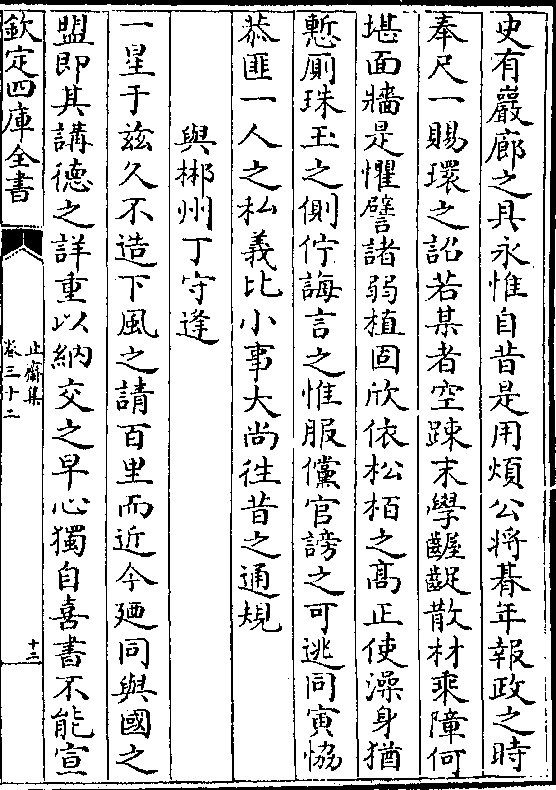 史有巖廊之具永惟自昔是用煩公將朞年報政之時
奉尺一賜環之詔若某者空踈末學齷齪散材乘障何
堪面牆是懼譬諸弱植固欣依松栢之髙正使澡身猶
慙厠珠玉之側佇誨言之惟服儻官謗之可逃同寅恊
恭匪一人之私義比小事大尚徃昔之通規
與郴州丁守逢
一星于兹久不造下風之請百里而近今廼同與國之
盟即其講徳之詳重以納交之早心獨自喜書不能宣
欽定四庫全書
止齋集
卷三十二
十二